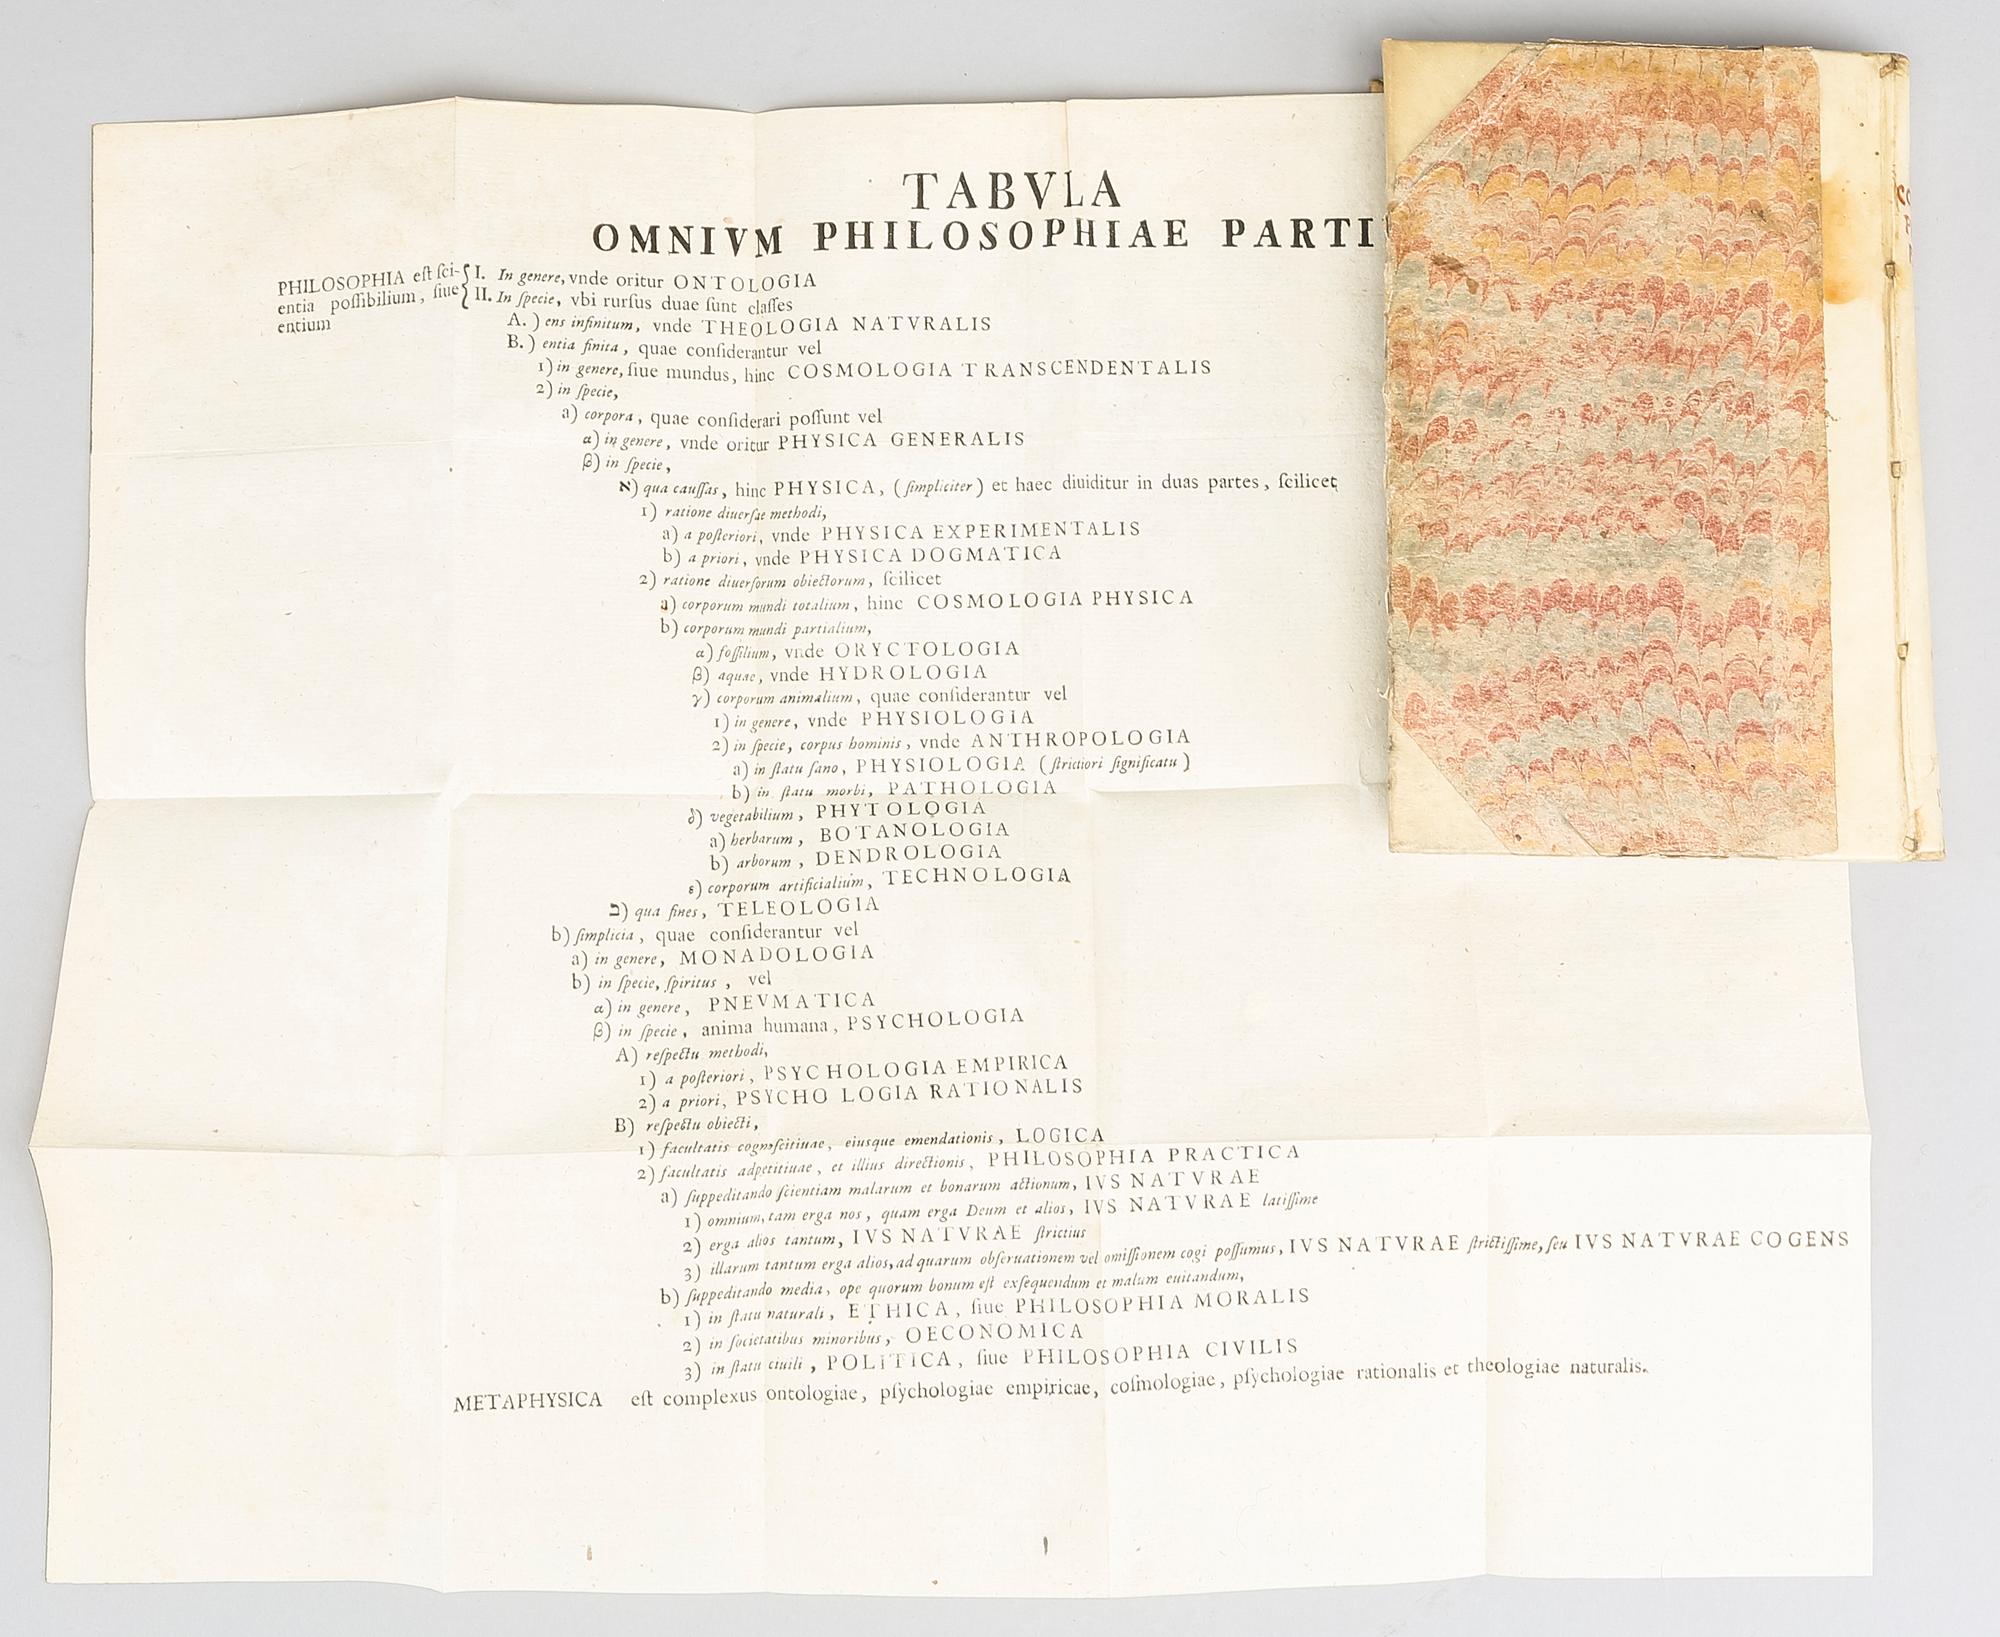 TABVLA
OMNIVM PHILOSOPHIAE PARTI
PHILOSOPHIA eſt ſci-
entia poſſibilium, ſiue
entium
I. In genere, vnde oritur ONTOLOGIA
II. In ſpecie, vbi rurſus duae ſunt claſſes
A.) ens infinitum, vnde THEOLOGIA NATVRALIS
B.) entia finita, quae conſiderantur vel
1) in genere, ſiue mundus, hinc COSMOLOGIA TRANSCENDENTALIS
2) in ſpecie,
a) corpora, quae conſiderari poſſunt vel
α) in genere, vnde oritur PHYSICA GENERALIS
β) in ſpecie,
א) qua cauſſas, hinc PHYSICA, (ſimpliciter) et haec diuiditur in duas partes, ſcilicet
1) ratione diuerſae methodi,
a) a poſteriori, vnde PHYSICA EXPERIMENTALIS
b) a priori, vnde PHYSICA DOGMATICA
2) ratione diuerſorum obiectorum, ſcilicet
a) corporum mundi totalium, hinc COSMOLOGIA PHYSICA
b) corporum mundi partialium,
α) foſſilium, vnde ORYCTOLOGIA
β) aquae, vnde HYDROLOGIA
γ) corporum animalium, quae conſiderantur vel
1) in genere, vnde PHYSIOLOGIA
2) in ſpecie, corpus hominis, vnde ANTHROPOLOGIA
a) in ſtatu ſano, PHYSIOLOGIA (ſtrictiori ſignificatu)
b) in ſtatu morbi, PATHOLOGIA
δ) vegetabilium, PHYTOLOGIA
a) herbarum, BOTANOLOGIA
b) arborum, DENDROLOGIA
ε) corporum artificialium, TECHNOLOGIA
ב) qua fines, TELEOLOGIA
b) ſimplicia, quae conſiderantur vel
a) in genere, MONADOLOGIA
b) in ſpecie, ſpiritus, vel
α) in genere, PNEVMATICA
β) in ſpecie, anima humana, PSYCHOLOGIA
A) reſpectu methodi,
1) a poſteriori, PSYCHOLOGIA EMPIRICA
2) a priori, PSYCHO LOGIA RATIONALIS
B) reſpectu obiecti,
1) facultatis cognoſcitiuae, eiusque emendationis, LOGICA
2) facultatis adpetitiuae, et illius directionis, PHILOSOPHIA PRACTICA
a) ſuppeditando ſcientiam malarum et bonarum actionum, IVS NATVRAE
1) omnium, tam erga nos, quam erga Deum et alios, IVS NATVRAE latiſſime
2) erga alios tantum, IVS NATVRAE ſtrictius
3) illarum tantum erga alios, ad quarum obſeruationem vel omiſſionem cogi poſſumus, IVS NATVRAE ſtrictiſſime, ſeu IVS NATVRAE COGENS
b) ſuppeditando media, ope quorum bonum eſt exſequendum et malum euitandum,
1) in ſtatu naturali, ETHICA, ſiue PHILOSOPHIA MORALIS
2) in ſocietatibus minoribus, OECONOMICA
3) in ſtatu ciuili, POLITICA, ſiue PHILOSOPHIA CIVILIS
METAPHYSICA eſt complexus ontologiae, pſychologiae empiricae, coſmologiae, pſychologiae rationalis et theologiae naturalis.